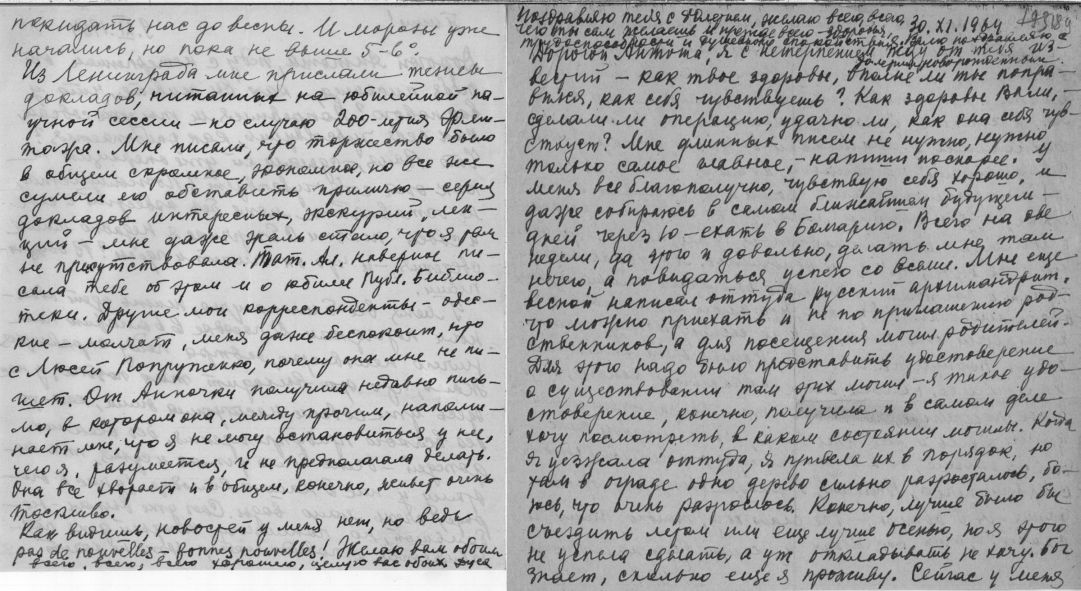 покидать нас до весны. И морозы уже
начались, но пока не выше 5-6°.
Из Ленинграда мне прислали тезисы
докладов, читанных на юбилейной на-
учной сессии – по случаю 200-летия Эрми-
тажа. Мне писали, что торжество было
в общем скромное, экономное, но все же
сумели его обставить прилично – серия
докладов интересных, экскурсий, лек-
ций – мне даже жаль стало, что я там
не присутствовала. Тат. Ал. наверное пи-
сала тебе об этом и о юбилее Публ. Библио-
теки. Другие мои корреспонденты – одес-
кие – молчат, меня даже беспокоит, что
с Люсей Попруженко, почему она мне не пи-
шет. От Анночки получила недавно пись-
мо, в котором она, между прочим, напоми-
нает мне, что я не могу остановиться у нее,
чего я, разумеется, и не предполагала делать.
Она все хворает и в общем, конечно, живет очень
тоскливо.
Как видишь, новостей у меня нет, но ведь
pas de nouvelles – bonnes nouvelles! Желаю вам обоим
всего, всего, всего хорошего, целую вас обоих. Муса
Поздравляю тебя с днем, желаю всего, всего, 30.XI.1964
чего ты сам желаешь и прежде всего – здоровья,
трудоспособности и душевного спокойствия. Валю поздравляю с
дорогим новорожденным.
Дорогой Антоша, я с нетерпением жду от тебя из-
вестий – как твое здоровье, вполне ли ты попра-
вился, как себя чувствуешь? Как здоровье Вали, –
сделали ли операцию, удачно ли, как она себя чув-
ствует? Мне длинных писем не нужно, нужно
только самое главное, – напиши поскорее. У
меня все благополучно, чувствую себя хорошо, и
даже собираюсь в самом ближайшем будущем –
дней через 10 – ехать в Болгарию. Всего на две
недели, да это и довольно, делать мне там
нечего, а повидаться успею со всеми. Мне еще
весной написал оттуда русский архимандрит,
что можно приехать и не по приглашению род-
ственников, а для посещения могил родителей.
Для этого надо было представить удостоверение
о существовании там этих могил – я такое удо-
стоверение, конечно, получила и в самом деле
хочу посмотреть, в каком состоянии могилы. Когда
я уезжала оттуда, я привела их в порядок, но
там в ограде одно дерево сильно разросталось, бо-
юсь, что очень разрослось. Конечно, лучше было бы
съездить летом или еще лучше осенью, но я этого
не успела сделать, а уж откладывать не хочу. Бог
знает, сколько еще я проживу. Сейчас у меня